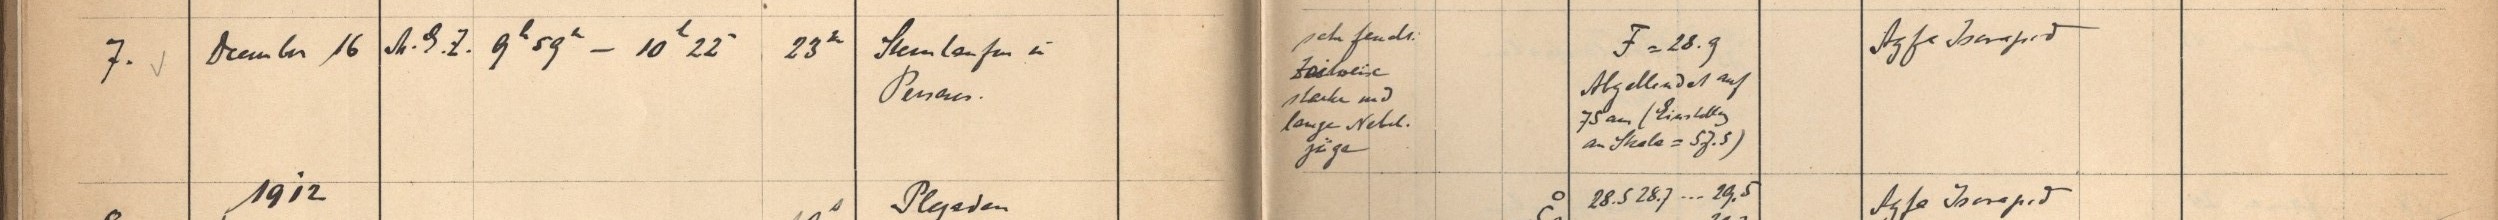 7. √ December 16 M.E.Z. 9h 59m — 10h 22m 23m Sternhaufen in
Perseus.
sehr feucht.
Zeitweise
starke und
lange Nebel-
züge
F = 28.9
Abgeblendet auf
75 mm (Einstellg
an Skala = 57.5)
Agfa Isorapid
1912
Plejaden
28.5 28.7 ... 29.5
Agfa Isorapid